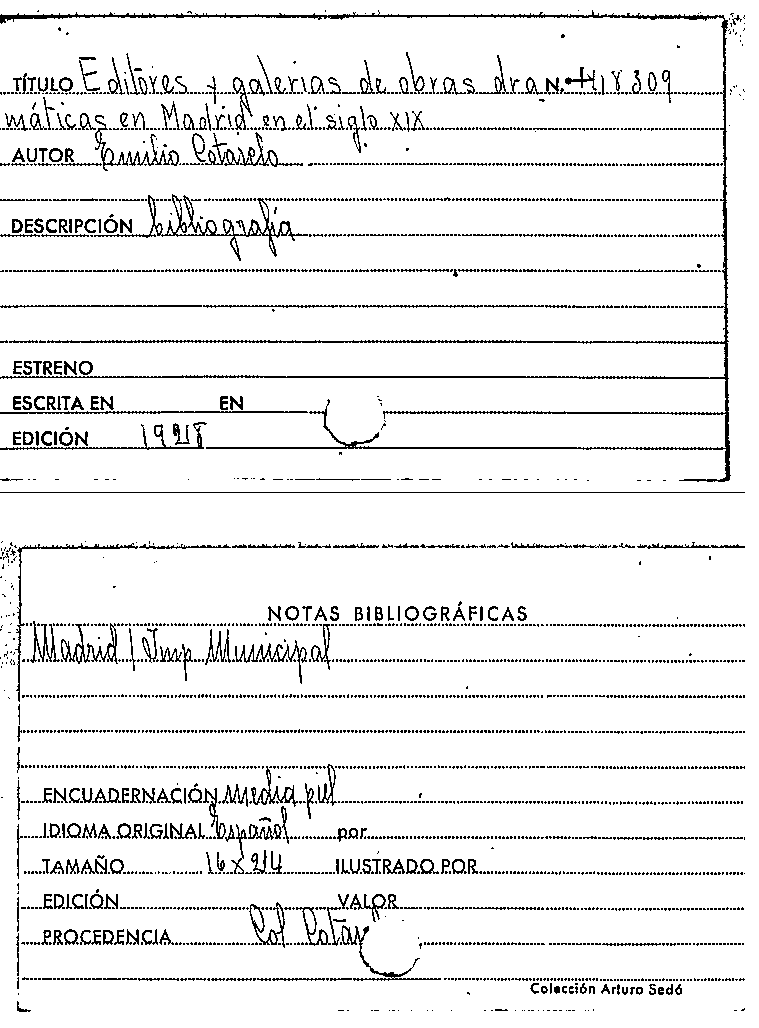 TÍTULO Editores y galerias de obras dra N. 18309
máticas en Madrid en el siglo XIX
AUTOR Emilio Cotarelo
DESCRIPCIÓN bibliografía
ESTRENO
ESCRITA EN EN
EDICIÓN 1928
NOTAS BIBLIOGRÁFICAS
Madrid / Imp Municipal
ENCUADERNACIÓN media piel
IDIOMA ORIGINAL Español por
TAMAÑO 16 x 24 ILUSTRADO POR
EDICIÓN VALOR
PROCEDENCIA Col Cotar
Colección Arturo Sedó